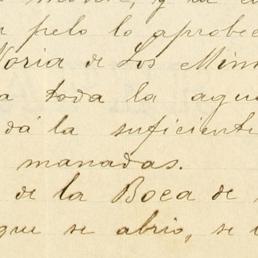 pelo lo aprobec
Noria de Los Mim
a toda la agua
dá la suficiente
manadas.
de la Boca de
que se abrio, se